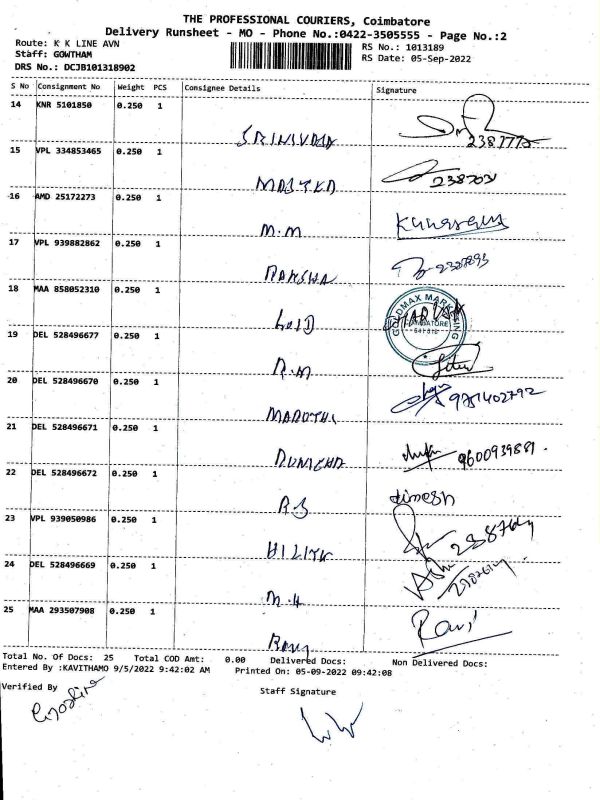 THE PROFESSIONAL COURIERS, Coimbatore
Delivery Runsheet - MO - Phone No.:0422-3505555 - Page No.:2
Route: K K LINE AVN
Staff: GOWTHAM
DRS No.: DCJB101318902
RS No.: 1013189
RS Date: 05-Sep-2022
S No Consignment No Weight PCS Consignee Details Signature
14 KNR 5101850 0.250 1
SRINIVASA
15 VPL 334853465 0.250 1
16 AMD 25172273 0.250 1
M.M
17 VPL 939882862 0.250 1
RAKSHA
18 MAA 858052310 0.250 1
GOLD
GOLDMAX MARKETING
COIMBATORE
19 DEL 528496677 0.250 1
R.M
20 DEL 528496670 0.250 1
MARUTHI
9751402792
21 DEL 528496671 0.250 1
9600939881.
22 DEL 528496672 0.250 1
dimesh
RS
23 VPL 939050986 0.250 1
24 DEL 528496669 0.250 1
M.H
25 MAA 293507908 0.250 1
Ravi
Total No. Of Docs: 25 Total COD Amt: 0.00 Delivered Docs: Non Delivered Docs:
Entered By :KAVITHAMO 9/5/2022 9:42:02 AM Printed On: 05-09-2022 09:42:08
Verified By Staff Signature